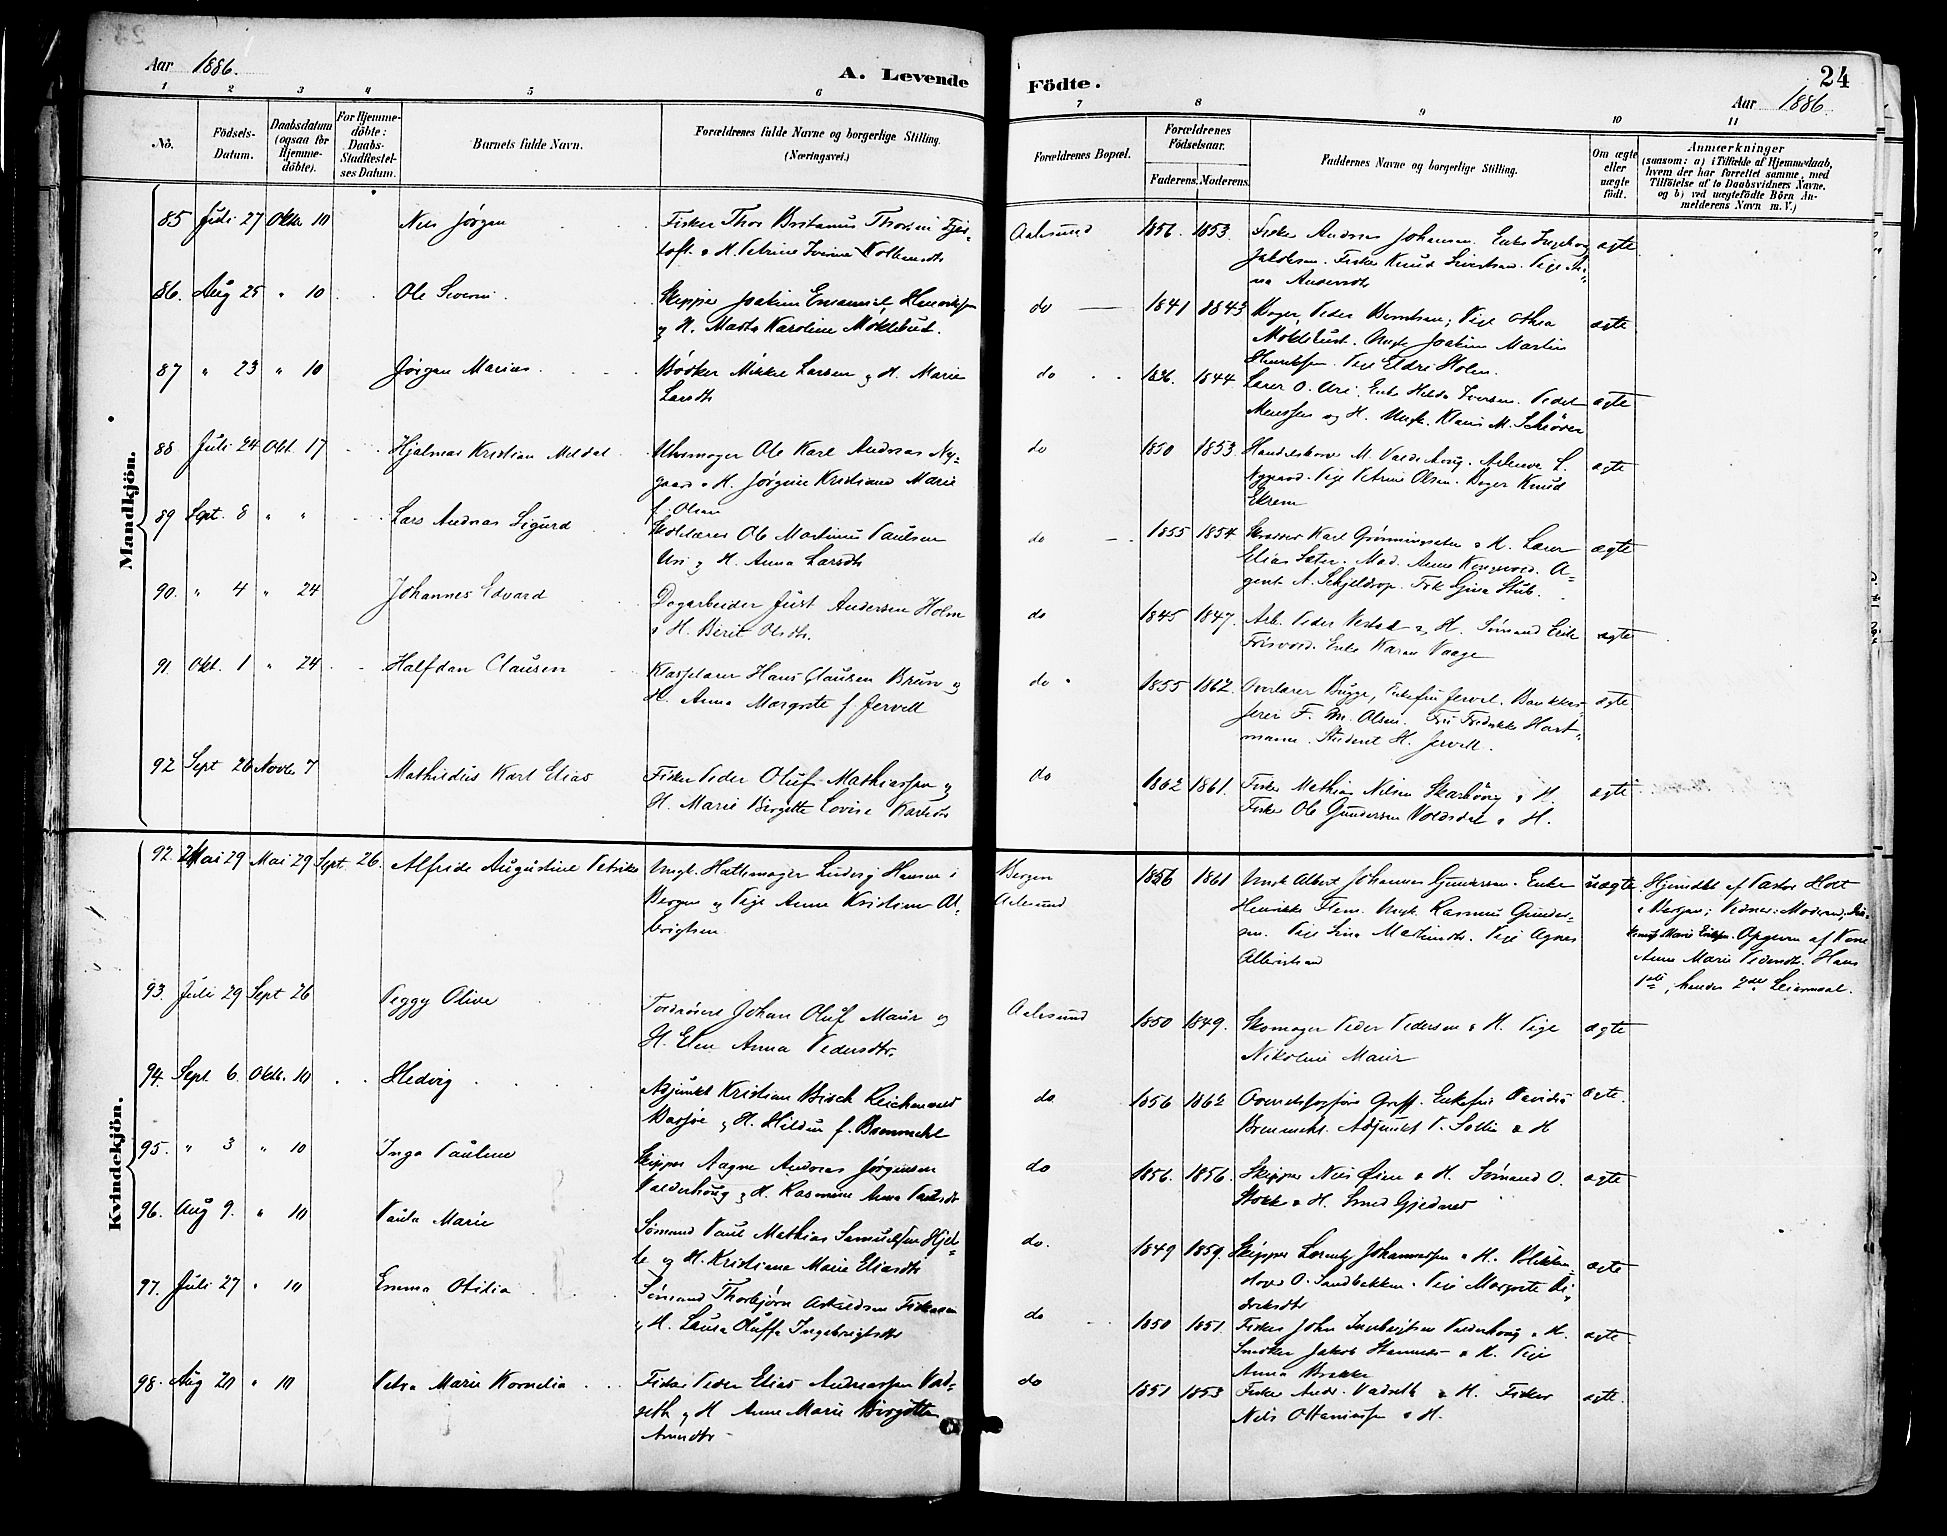 Aar 1886.
A. Levende
Födte.
24
Aar 1886.
1 2 3 4 5 6 7 8 9 10 11
No.
Födsels-Datum.
Daabsdatum (ogsaa för Hjemme-döbte).
For Hjemme-döbte: Daabs-Stadfæstel-ses Datum.
Barnets fulde Navn.
Forældrenes fulde Navne og borgerlige Stilling.
(Næringsvei.)
Forældrenes Bopæl.
Forældrenes Födselsaar.
Faderens. Moderens.
Faddernes Navne og borgerlige Stilling.
Om ægte eller uægte födt.
Anmærkninger
(saasom: a) i Tilfælde af Hjemmedaab,
hvem der har forrettet samme, med
Tilföielse af to Daabsvidners Navne,
og b) ved uægtefödte Börn An-
melderens Navn m. V.)
Mandkjön.
85 Juli 27 Oktr. 10 Nils Jörgen
Fisker Thor Thorsen
Aalesund 1856. 1853. Fisker Andreas Johansen. Enke Ingeborg
Jakobsen. Fisker Knud Sivertsen. Pige
ægte
86. Aug 25 " 10 Ole Severin
Skipper Joakim Emanuel Henriksen
og H. Marta Karoline Möklebust.
do 1841 1843 Peder Berntsen; Pige
Möklebust. Ungk. Joakim Martin
Henriksen. Pige Eldri Holm.
ægte
87 " 23 " 10 Jörgen Marius
Bödker Mikkel Larsen og H. Marie
Larsdtr
do 1844 Lærer O. Uri. Enke Hilda Iversen. Peder
og H. Ungk. Klaus M.
ægte
88 Juli 24 Okt. 17 Hjalmar Kristian Meldal
Uhrmager Ole Karl Andreas Ny-
gaard o H. Jörgine Kristiane Marie
f. Olsen
do 1850 1853. M. Valderhoug.
Nygaard. Pige Petrine Olsen. Bager Knud
Ekrem
ægte
89 Sept. 8 " " Lars Andreas Sigurd
Skolelærer Ole Martinus Paulsen
Uri og H. Anna Larsdtr
do 1855 1854 Karl Grönningsæter o H. Lærer
Elias Sæter. Mad. Anne A-
gent A. Schjelderop. Frk Gina Stub.
ægte
90. " 4 " 24 Johannes Edvard
Dagarbeider Just Andersen Holm
o H. Berit Olsdtr.
do 1845 1847. Arb. Peder o H. Sömand Erik
Frisvold. Enke Karen Vaage
ægte
91. Okt. 1 " 24 Halfdan Clausen
Klasselærer Hans Clausen Brun og
H. Anna Margrete f. Jervell
do 1855 1862. Overlærer Bygge, Enkefru Jervell. Bankkas-
serer F. M. Olsen. Fru Fredrikke Hart-
mann. Student H. Jervell.
ægte
92 Sept 26 Novbr 7 Mathideus Karl Elias
Fisker Peder Oluf Mathiassen og
H. Marie Birgitte Lovise
do 1862 1861. Fisker Mathias Nilsen Skarbövig o H.
Fisker Ole Gundersen Voldsdal o H.
ægte
Kvindekjön.
92. Mai 29 Mai 29 Sept. 26. Alfrida Augustine Petrikke
Ungk. Hattemager Ludvig Hansen i
Bergen og Pige Anne Kristine Al-
brigtsen
Bergen
Aalesund
1856 1861 Ungk Albert Johannes Gundersen. Enke
Henrikke Flem. Ungk. Rasmus Gunder-
sen. Pige Lina Martinsdtr. Pige Agnes
Albrigtsen
uægte Hjemdöbt af Pastor Holt
i Bergen; Vidner: Moderen,
Marie Opgiven af Kone
Anne Marie Pedersdtr. Hans
1ste, hendes 2det Leiermaal.
93. Juli 29 Sept 26 Peggy Olive
Johan Oluf Maur og
H. Elen Anna Pedersdtr.
Aalesund 1850 1849. Skomager Peder Pedersen o H. Pige
Nikoline Maur
ægte
94. Sept. 6. Oktbr. 10 Hedvig
Adjunkt Kristian Bisch Reichenwald
og H. Hildur f. Bommehl
do 1856 1862 Graff. Enkefru Davida
Adjunkt o H
ægte.
95. " 3 " 10 Inga Pauline
Skipper Aagne Andreas Jörgensen
Valderhoug og H. Rasmine Anna Paulsdtr
do 1856. 1856. Skipper Nils Öien o H. Sömand O.
Stokk o H. Smed Gjedner
ægte
96. Aug 9. " 10 Paula Marie
Sömand Paul Mathias Samuelsen Hjel-
le og H. Kristiane Marie Eliasdtr
do. 1849 1859. Skipper Lorentz Johannessen o H. Blikken-
slager O. Sandbakken. Pige Margrete Di-
driksdtr
ægte
97. Juli 27 " 10 Emma Otilia
Sömand Thorbjörn
o H. Laura Oluffa Ingebrigtsdtr
do 1850 1851. Fisker John Ingebrigtsen Valderhoug o H.
Snedker Jakob o H. Pige
Anna Brekke
ægte
98. Aug 20 " 10 Petra Marie Kornelia
Fisker Peder Elias Andreassen Vad-
seth og H Anne Marie Birgitte
do 1851 1853 Fisker Andr. Vadseth o H. Fisker
Nils o H.
ægte.